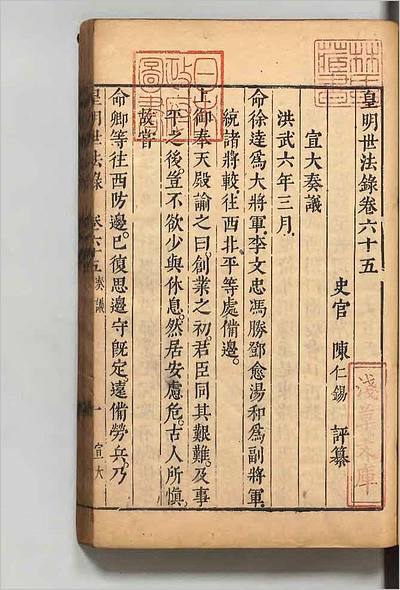 皇明世法錄卷六十五
史官 陳仁錫 評纂
宣大奏議
洪武六年三月
命徐達爲大將軍李文忠馮勝鄧愈湯和爲副將軍
統諸將較往西北平等處備邊
上御奉天殿諭之曰創業之初君臣同其艱難及事
平之後豈不欲少與休息然居安慮危古人所愼
故宫
命卿等往西防邊已復思邊守旣定遠備勞兵乃
皇明世法錄 卷六十五 奏議 一 宣大
淺草文庫
林氏藏書
日本政府圖書